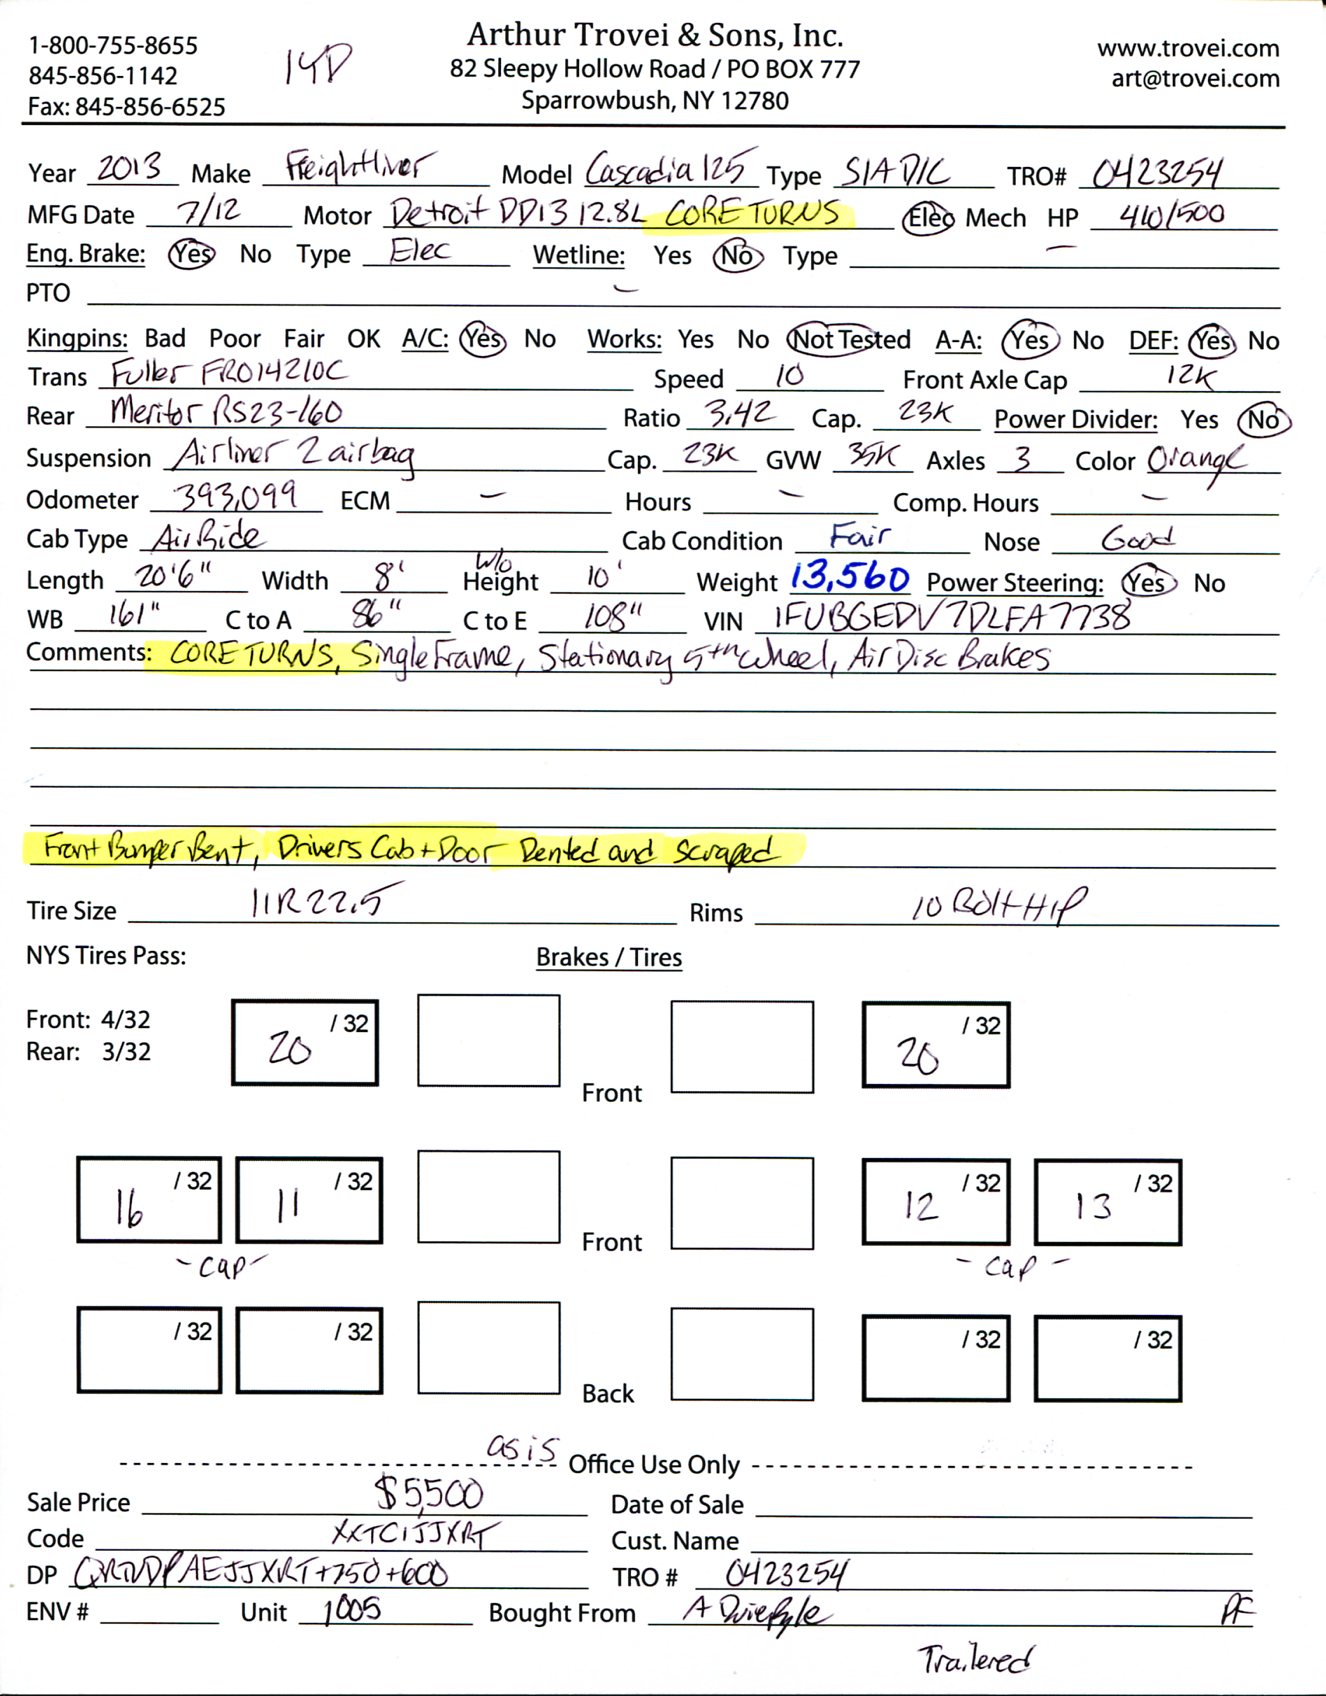 Arthur Trovei & Sons, Inc.
1-800-755-8655
82 Sleepy Hollow Road / PO BOX 777
www.trovei.com
845-856-1142
14D
art@trovei.com
Fax: 845-856-6525
Sparrowbush, NY 12780
Year 2013 Make Freightliner Model Cascadia 125 Type S/A D/C TRO# 0423254
MFG Date 7/12 Motor Detroit DD13 12.8L CORE TURNS Elec Mech HP 410/500
Eng. Brake: Yes No Type Elec Wetline: Yes No Type —
PTO —
Kingpins: Bad Poor Fair OK A/C: Yes No Works: Yes No Not Tested A-A: Yes No DEF: Yes No
Trans Fuller FRO14210C Speed 10 Front Axle Cap 12K
Rear Meritor RS23-160 Ratio 3.42 Cap. 23K Power Divider: Yes No
Suspension Airliner 2 airbag Cap. 23K GVW 35K Axles 3 Color Orange
Odometer 393,099 ECM — Hours — Comp. Hours —
Cab Type Air Ride Cab Condition Fair Nose Good
Length 20'6" Width 8' w/o Height 10' Weight 13,560 Power Steering: Yes No
WB 161" C to A 86" C to E 108" VIN 1FUBGEDV7DLFA7738
Comments: CORE TURNS, Single Frame, Stationary 5th Wheel, Air Disc Brakes
Front Bumper Bent, Drivers Cab + Door Dented and Scraped
Tire Size 11R22.5 Rims 10 Bolt H/P
NYS Tires Pass: Brakes / Tires
Front: 4/32
Rear: 3/32
20 /32 20 /32
Front
16 /32 11 /32 12 /32 13 /32
Front
- cap - - cap -
/32 /32 /32 /32
Back
as is
Office Use Only
Sale Price $5,500 Date of Sale
Code XXTCIJJXRT Cust. Name
DP AEJJXRT+750+600 TRO # 0423254
ENV # Unit 1005 Bought From A Duie Pyle PF
Trailered